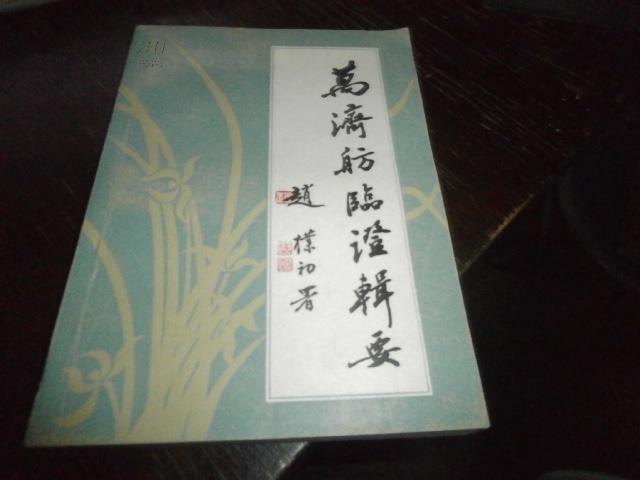 萬濟舫臨證輯要
趙樸初署